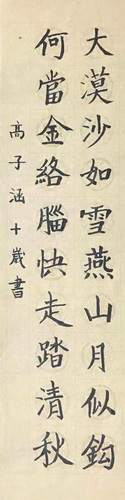 大漠沙如雪燕山月似鈎
何當金絡腦快走踏清秋
高子涵十歲書